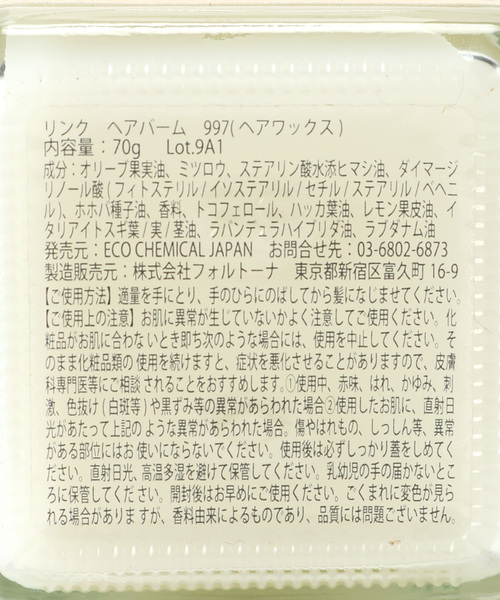 リンク ヘアバーム 997(ヘアワックス)
内容量：70g Lot.9A1
成分：オリーブ果実油、ミツロウ、ステアリン酸水添ヒマシ油、ダイマージ
リノール酸(フィトステリル/イソステアリル/セチル/ステアリル/ベヘニ
ル)、ホホバ種子油、香料、トコフェロール、ハッカ葉油、レモン果皮油、イ
タリアイトスギ葉/実/茎油、ラバンデュラハイブリダ油、ラブダナム油
発売元：ECO CHEMICAL JAPAN お問合せ先：03-6802-6873
製造販売元：株式会社フォルトーナ 東京都新宿区富久町16-9
【ご使用方法】適量を手にとり、手のひらにのばしてから髪になじませてください。
【ご使用上の注意】お肌に異常が生じていないかよく注意してご使用ください。化
粧品がお肌に合わないとき即ち次のような場合には、使用を中止してください。そ
のまま化粧品類の使用を続けますと、症状を悪化させることがありますので、皮膚
科専門医等にご相談されることをおすすめします。①使用中、赤味、はれ、かゆみ、刺
激、色抜け(白斑等)や黒ずみ等の異常があらわれた場合②使用したお肌に、直射日
光があたって上記のような異常があらわれた場合。傷やはれもの、しっしん等、異常
がある部位にはお使いにならないでください。使用後は必ずしっかり蓋をしめてく
ださい。直射日光、高温多湿を避けて保管してください。乳幼児の手の届かないとこ
ろに保管してください。開封後はお早めにご使用ください。ごくまれに変色が見ら
れる場合がありますが、香料由来によるものであり、品質には問題ございません。